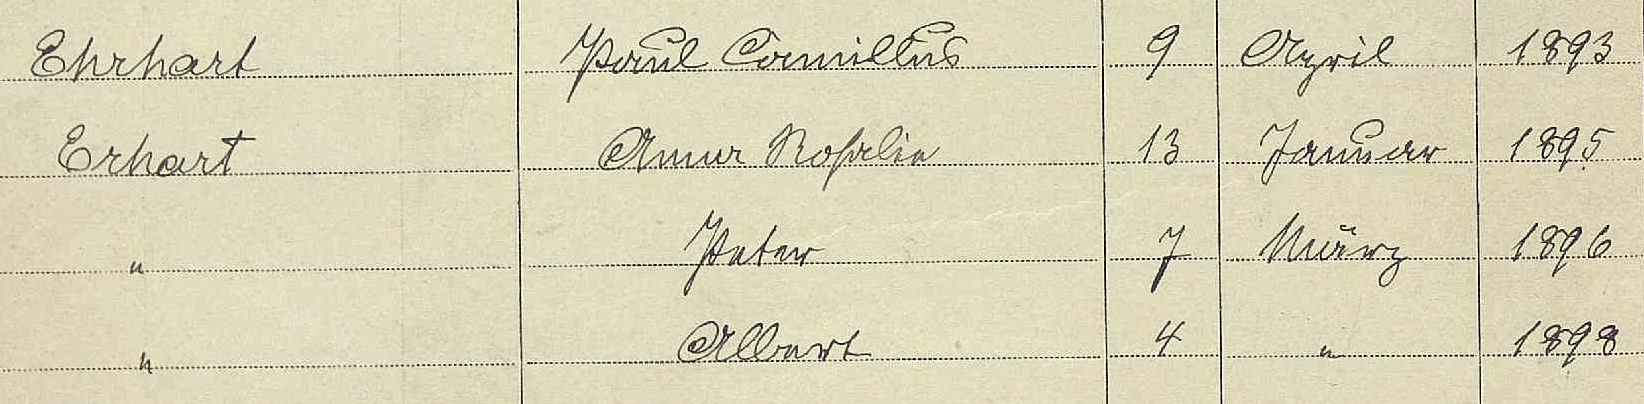 Ehrhart Paul Camillus 9 April 1893
Erhart Anna Rosalie 13 Januar 1895
" Peter 7 März 1896
" Albert 4 " 1898